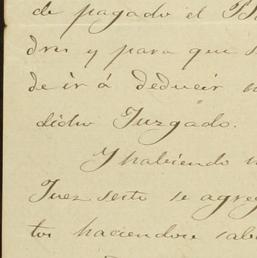 de pagado el
dres y para que
de ir á deducir
dicho Juzgado.
Y habiendo
Juez sesto se agre
tos haciendose sab